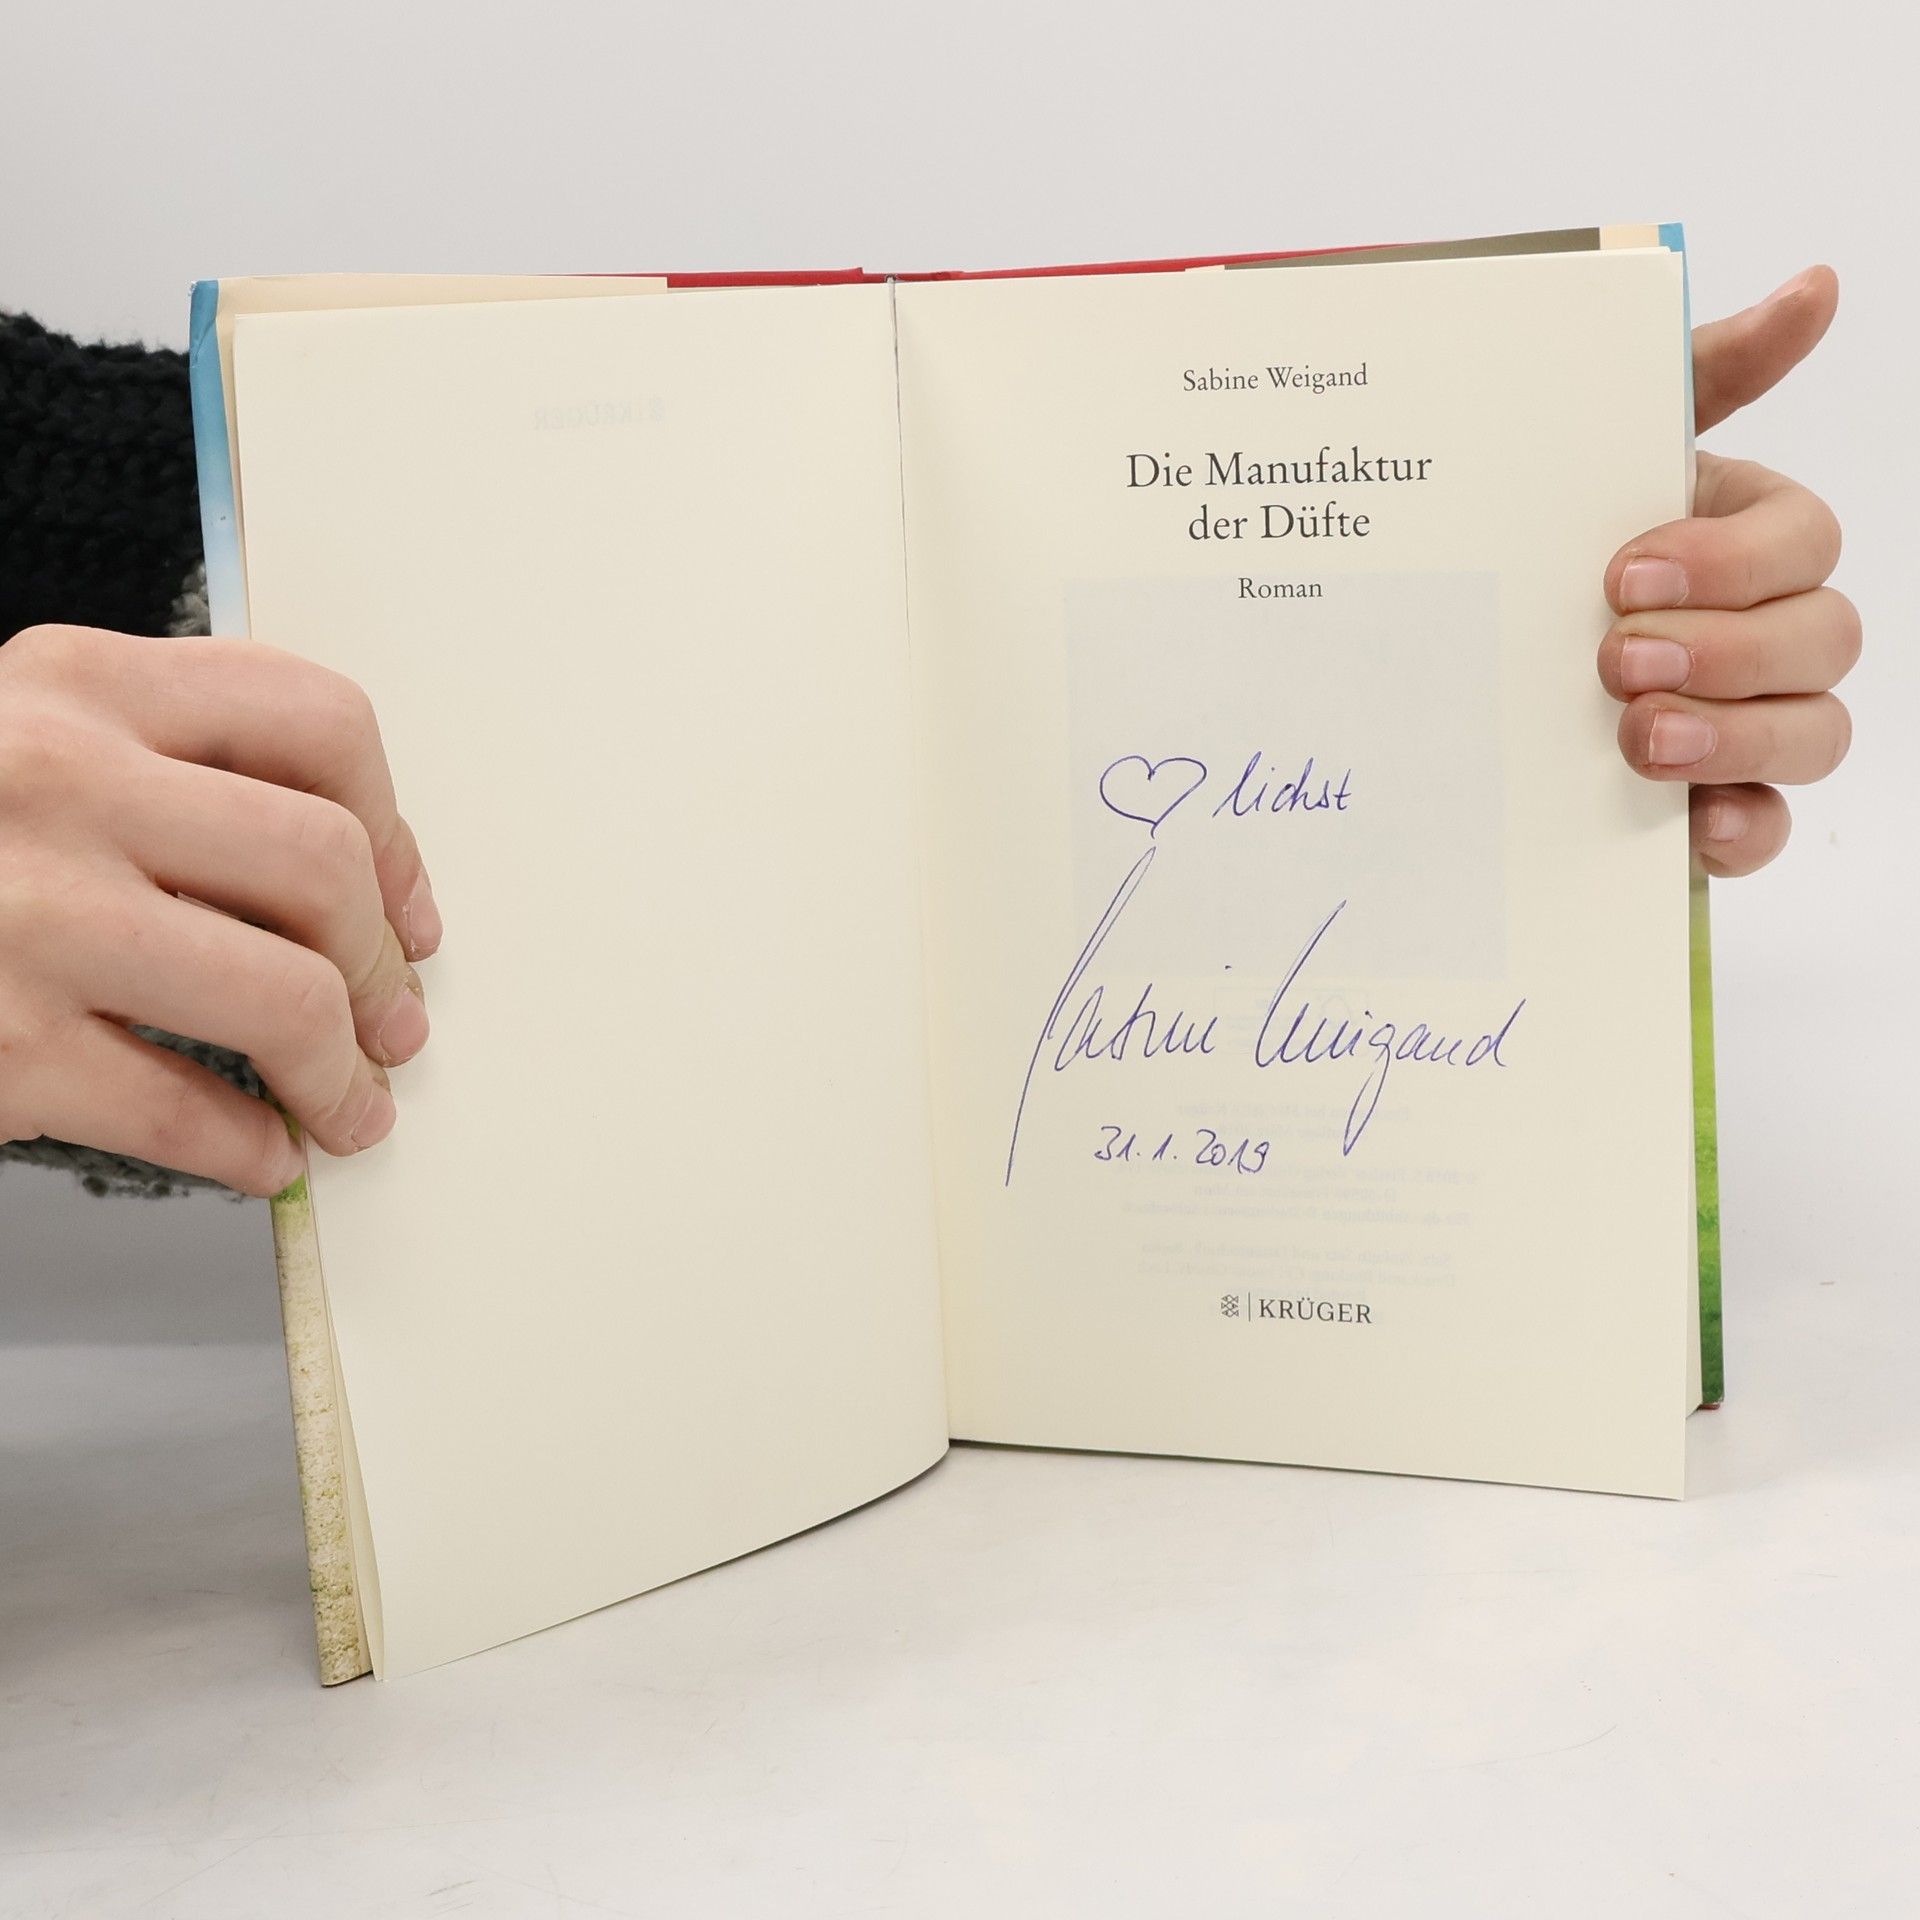 Sabine Weigand
Die Manufaktur
der Düfte
Roman
♡lichst
Sabine Weigand
31.1.2019
KRÜGER